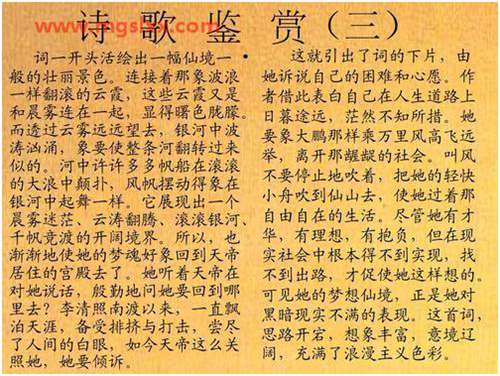 诗歌鉴赏（三）
词一开头活绘出一幅仙境一
般的壮丽景色。连接着那象波浪
一样翻滚的云霞，这些云霞又是
和晨雾连在一起，显得曙色胧朦。
而透过云雾远远望去，银河中波
涛汹涌，象要使整条河翻转过来
似的。河中许许多多帆船在滚滚
的大浪中颠扑，风帆摆动得象在
银河中起舞一样。它展现出一个
晨雾迷茫、云涛翻腾、滚滚银河、
千帆竞渡的开阔境界。所以，也
渐渐地使她的梦魂好象回到天帝
居住的宫殿去了。她听着天帝在
对她说话，殷勤地问她要回到哪
里去？李清照南渡以来，一直飘
泊天涯，备受排挤与打击，尝尽
了人间的白眼，如今天帝这么关
照她，她要倾诉。
这就引出了词的下片，由
她诉说自己的困难和心愿。作
者借此表白自己在人生道路上
日暮途远，茫然不知所措。她
要象大鹏那样乘万里风高飞远
举，离开那龌龊的社会。叫风
不要停止地吹着，把她的轻快
小舟吹到仙山去，使她过着那
自由自在的生活。尽管她有才
华，有理想，有抱负，但在现
实社会中根本得不到实现，找
不到出路，才促使她这样想的。
可见她的梦想仙境，正是她对
黑暗现实不满的表现。这首词，
思路开宕，想象丰富，意境辽
阔，充满了浪漫主义色彩。